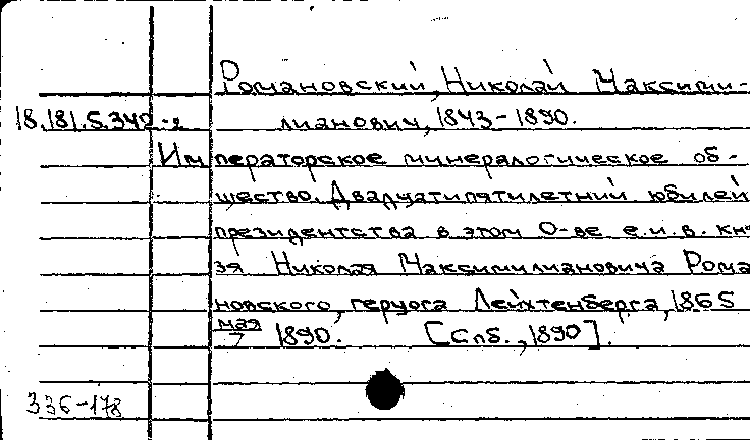 Романовский, Николай Максими-
18.181.5.342 лианович, 1843-1890.
Императорское минералогическое об-
щество. Двадцатипятилетний юбилей
президентства в этом О-ве е.и.в. кня
зя Николая Максимилиановича Рома
новского, герцога Лейхтенберга, 1865
7 мая 1890. [Спб., 1890].
336-178